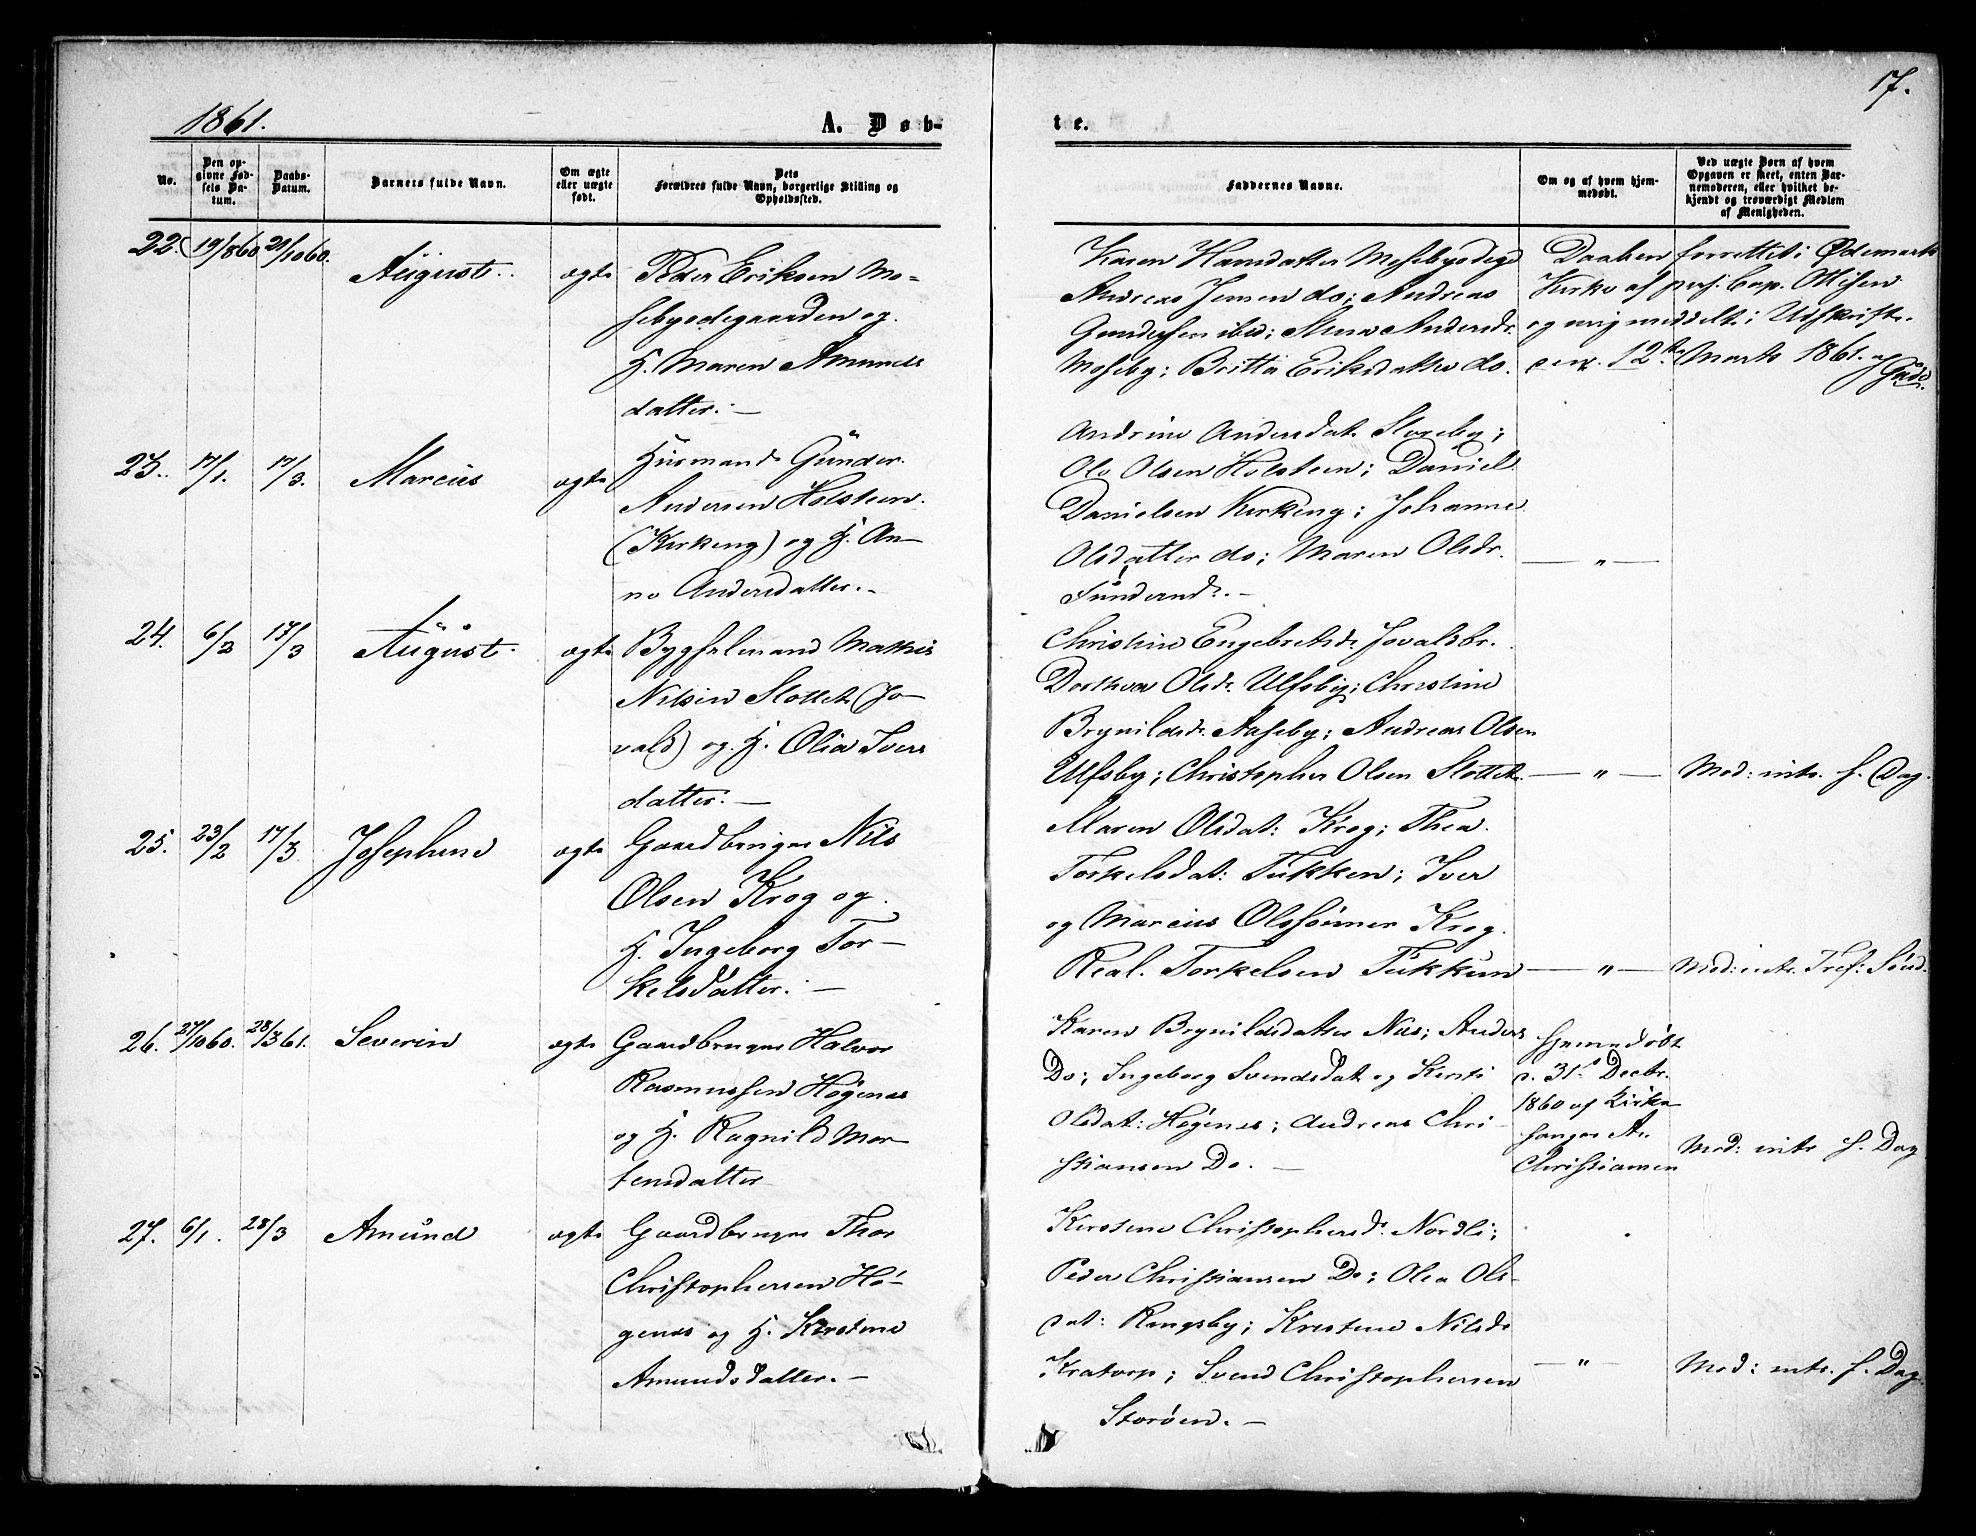 17.
1861.
A. Døb-
te.
No.
Den op-
givne Fød-
sels Da-
tum.
Daabs-
Datum.
Barnets fulde Navn.
Om ægte
eller uægte
født.
Dets
Forældres fulde Navn, borgerlige Stilling og
Opholdssted.
Faddernes Navne.
Om og af hvem hjem-
medøbt.
Ved uægte Børn af hvem
Opgaven er skeet, enten Bar-
nemoderen, eller hvilket be-
kjendt og troværdigt Medlem
af Menigheden.
22. 19/8 60 21/10 60. August. ægte
Peder Eriksen Mo-
sebyødegaarden og
H. Maren Amunds
datter. —
Karen Hansdatter Mosebyødegd
Andreas Jensen do; Andreas
Gundersen ibid; Andersdr.
Moseby; Britta Eriksdatter do.
Daaben forrettet i Ødemarks
Kirke af pers. Cap. Olsen
og mig meddelt i Udskrift
12te Marts 1861. af
23. 17/1. 17/3. Marcus ægte
Husmand Gunder
Andersen Holsteen
(Kirkeng) og H. An-
ne Andersdatter. -
Andrine Andersdat.
Ole Olsen Holsteen; Daniel
Danielsen Kirkeng; Johanne
Olsdatter do; Maren Olsdr.
— " —
24. 6/2 17/3 August. ægte
Bygselmand Mathis
Nilsen Slottet (Jo-
vald) og H. Olia Ivers
datter. —
Christine Engebretsdr. Jovaldbr.
Dorthea Olsdr. Ulfsby; Christine
Brynildsdr. Aaseby; Andreas Olsen
Ulfsby; Christopher Olsen Slottet.
— " —
Mod: intr. s. Dag.
25. 23/2 17/3 Josephine ægte
Gaardbruger Nils
Olsen Krog og
H. Ingeborg Tor-
kelsdatter. —
Maren Olsdat: Krog; Thea
Torkelsdat: Tukken; Iver
og Marcus Olssønner Krog.
Real. Torkelsen Tukkun
— " —
Mod: intr. Tref: Sønd.
26. 27/10 60. 28/3 61. Severin ægte
Gaardbruger Halvor
Rasmussen Høgenes
og H. Ragnild Mor-
tensdatter
Karen Brynildsdatter Nes; Anders
Do; Ingeborg Svendsdat og Kirsti
Olsdat: Høgenes; Andreas Chri-
stiansen Do. —
hjemmedøbt
d. 31te Decbr.
1860 af Kirke
sanger A.
Christiansen
Mod: intr s. Dag
27. 6/1. 28/3 Amund ægte
Gaardbruger Thor
Christophersen Hø-
genes og H. Kirstine
Amundsdatter. —
Kirstine Christophersd. Nordli;
Peder Christiansen Do; Olea Ols-
dat: Ringsby; Kirstine Nilsdr
Kratorp; Svend Christophersen
Storøen. —
— " —
Mod: intr. s. Dag.